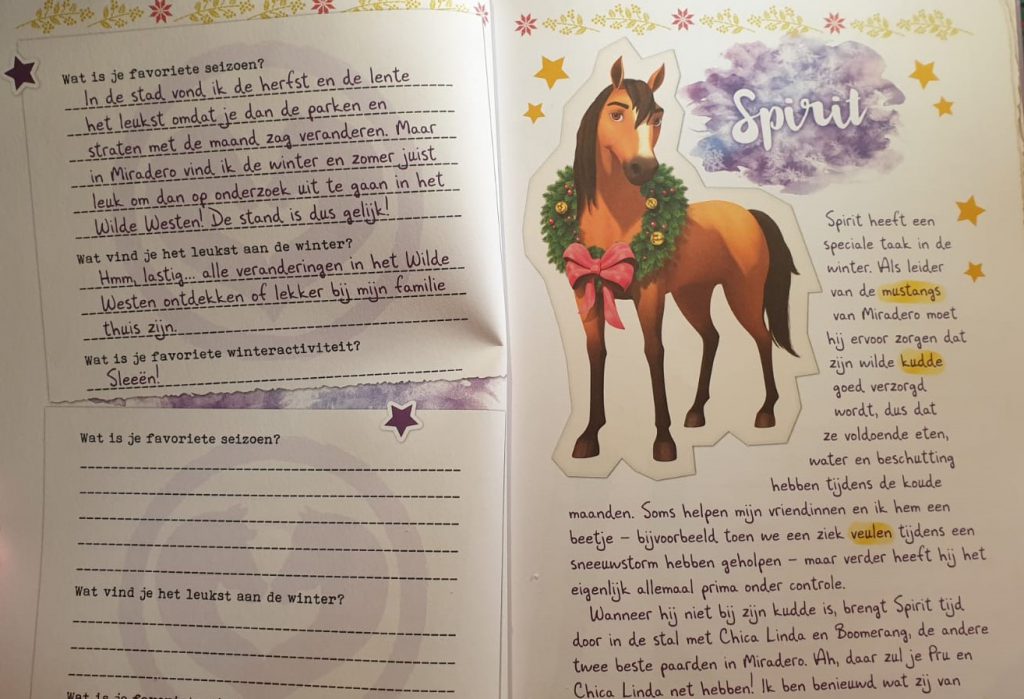 Wat is je favoriete seizoen?
In de stad vond ik de herfst en de lente
het leukst omdat je dan de parken en
straten met de maand zag veranderen. Maar
in Miradero vind ik de winter en zomer juist
leuk om dan op onderzoek uit te gaan in het
Wilde Westen! De stand is dus gelijk!
Wat vind je het leukst aan de winter?
Hmm, lastig... alle veranderingen in het Wilde
Westen ontdekken of lekker bij mijn familie
thuis zijn.
Wat is je favoriete winteractiviteit?
Sleeën!
Wat is je favoriete seizoen?
Wat vind je het leukst aan de winter?
Spirit
Spirit heeft een
speciale taak in de
winter. Als leider
van de mustangs
van Miradero moet
hij ervoor zorgen dat
zijn wilde kudde
goed verzorgd
wordt, dus dat
ze voldoende eten,
water en beschutting
hebben tijdens de koude
maanden. Soms helpen mijn vriendinnen en ik hem een
beetje – bijvoorbeeld toen we een ziek veulen tijdens een
sneeuwstorm hebben geholpen – maar verder heeft hij het
eigenlijk allemaal prima onder controle.
Wanneer hij niet bij zijn kudde is, brengt Spirit tijd
door in de stal met Chica Linda en Boomerang, de andere
twee beste paarden in Miradero. Ah, daar zul je Pru en
Chica Linda net hebben! Ik ben benieuwd wat zij van